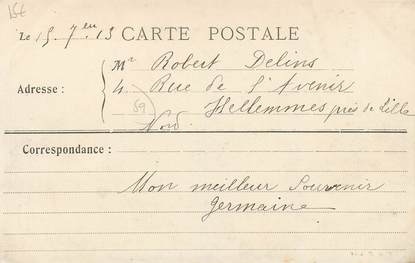 15€
Le 15. 7bre 13 CARTE POSTALE
Mr Robert Delins
Adresse : 4 Rue de l'Avenir
59 Hellemmes près de Lille
Nord
Correspondance :
Mon meilleur Souvenir
Germaine